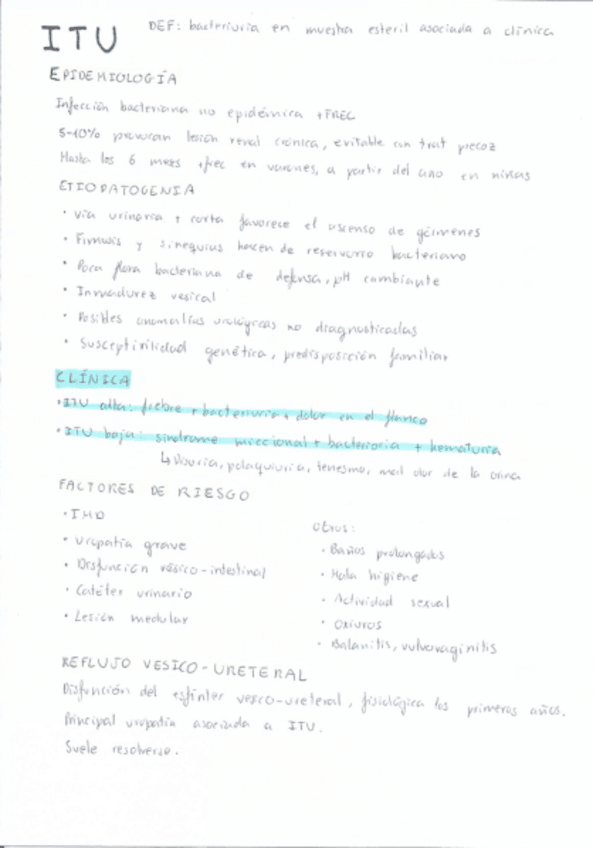 ITU
DEF: bacteriuria en muestra esteril asociada a clínica
EPIDEMIOLOGÍA
Infección bacteriana no epidémica +FREC
5-10% provocan lesión renal crónica, evitable con trat precoz
Hasta los 6 meses +frec en varones, a partir del año en niñas
ETIOPATOGENIA
• Vía urinaria + corta favorece el ascenso de gérmenes
• Fimosis y sinequias hacen de reservorio bacteriano
• Poca flora bacteriana de defensa, pH cambiante
• Inmadurez vesical
• Posibles anomalías urológicas no diagnosticadas
• Susceptibilidad genética, predisposición familiar
CLÍNICA
• ITU alta: fiebre + bacteriuria + dolor en el flanco
• ITU baja: síndrome miccional + bacteriuria + hematuria
↳ disuria, polaquiuria, tenesmo, mal olor de la orina
FACTORES DE RIESGO
• IMD
• Uropatía grave
• Disfunción vésico-intestinal
• Catéter urinario
• Lesión medular
Otros:
• Baños prolongados
• Mala higiene
• Actividad sexual
• Oxiuros
• Balanitis, vulvovaginitis
REFLUJO VESICO-URETERAL
Disfunción del esfínter vesico-ureteral, fisiológica los primeros años.
Principal uropatía asociada a ITU.
Suele resolverse.